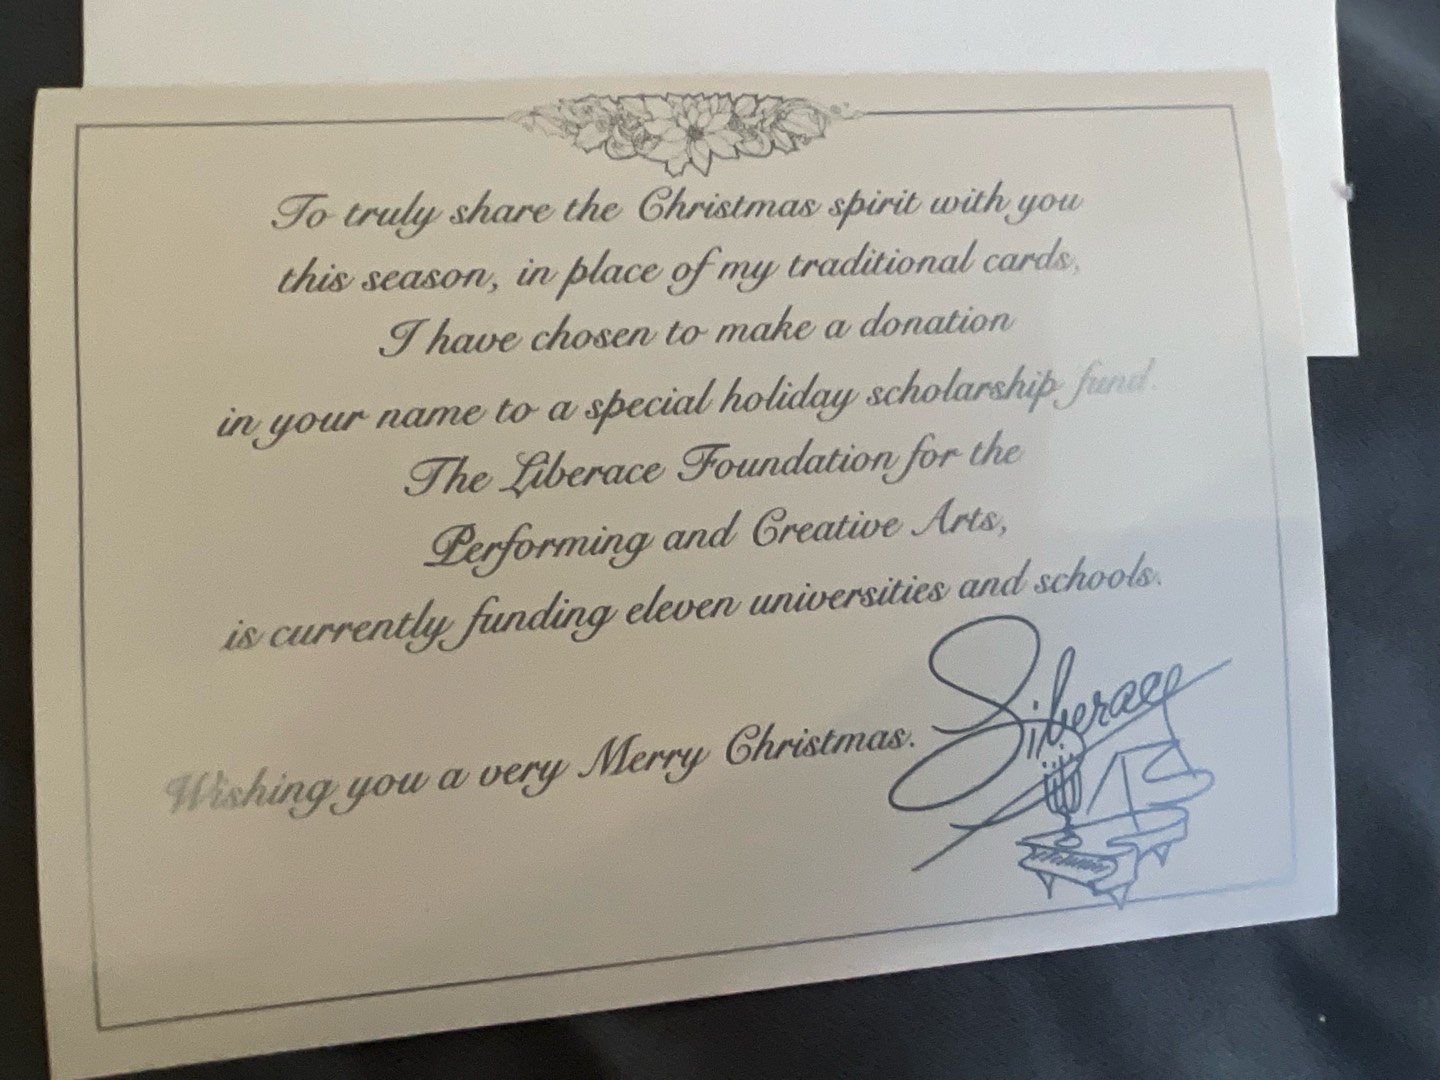 To truly share the Christmas spirit with you
this season, in place of my traditional cards,
I have chosen to make a donation
in your name to a special holiday scholarship fund.
The Liberace Foundation for the
Performing and Creative Arts,
is currently funding eleven universities and schools.
Wishing you a very Merry Christmas.
Liberace